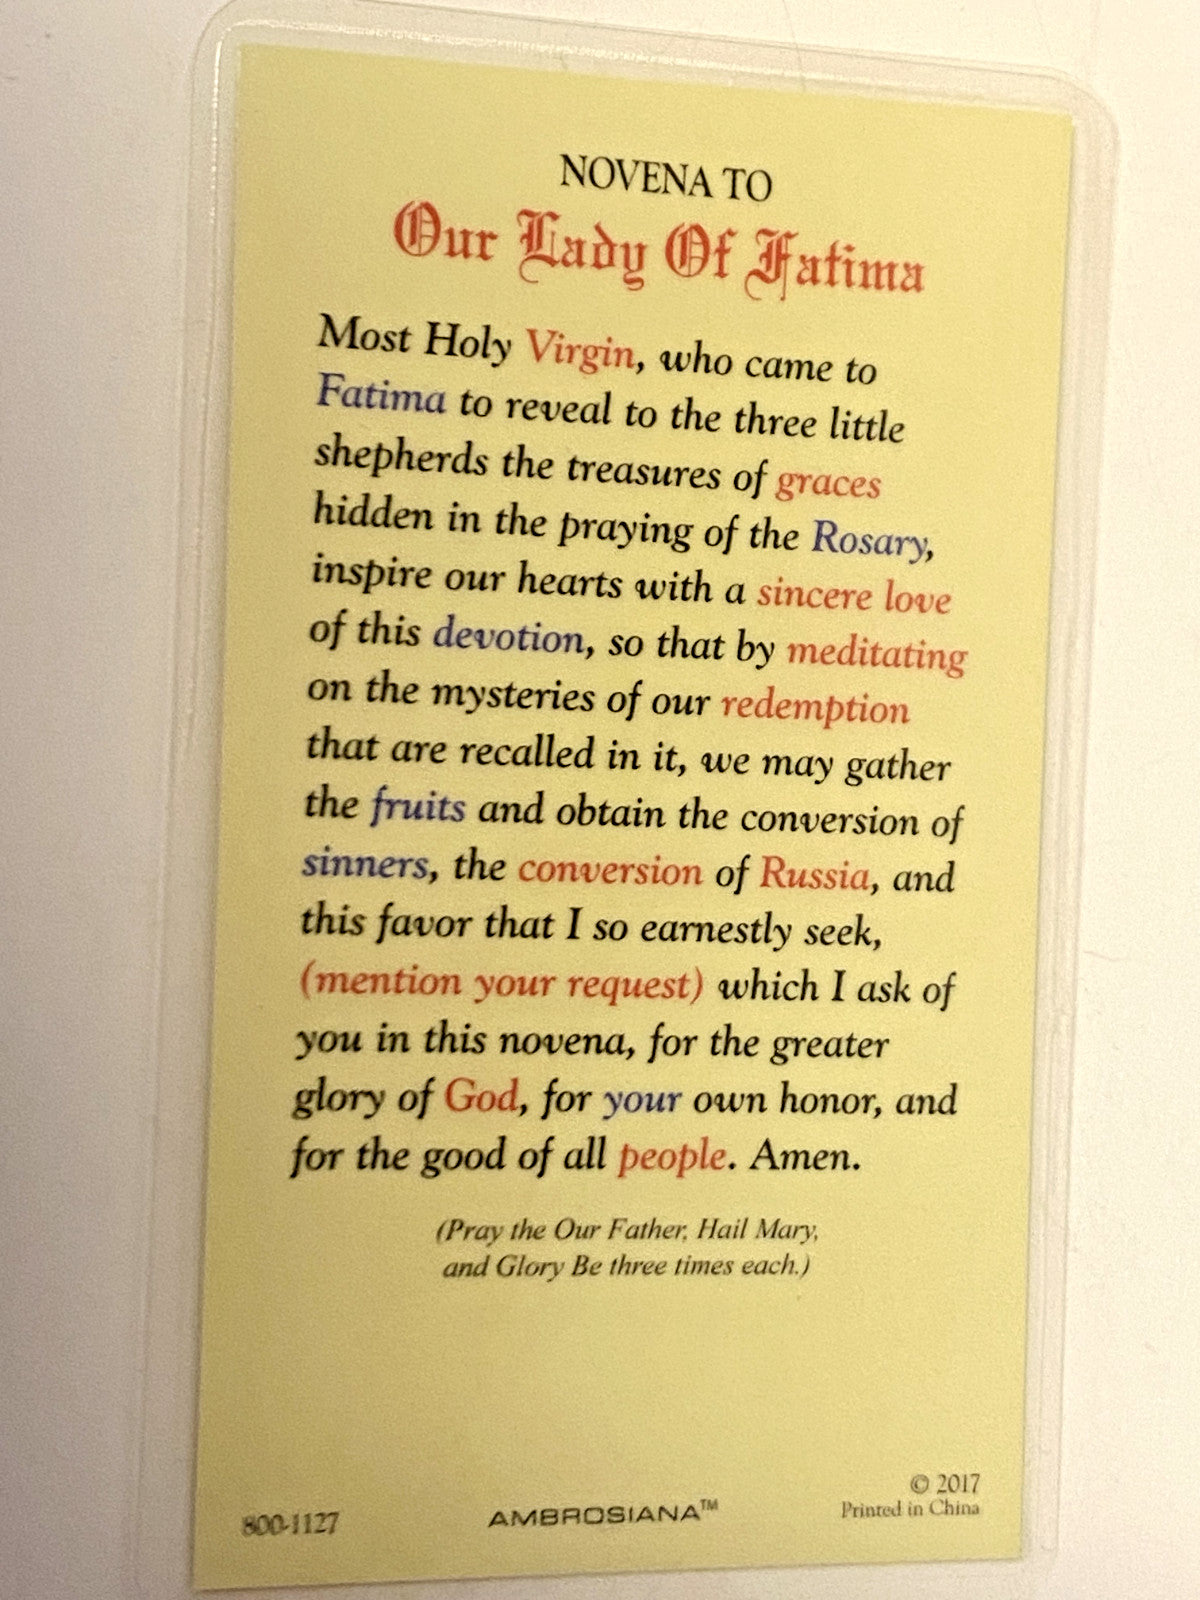 NOVENA TO
Our Lady Of Fatima
Most Holy Virgin, who came to
Fatima to reveal to the three little
shepherds the treasures of graces
hidden in the praying of the Rosary,
inspire our hearts with a sincere love
of this devotion, so that by meditating
on the mysteries of our redemption
that are recalled in it, we may gather
the fruits and obtain the conversion of
sinners, the conversion of Russia, and
this favor that I so earnestly seek,
(mention your request) which I ask of
you in this novena, for the greater
glory of God, for your own honor, and
for the good of all people. Amen.
(Pray the Our Father, Hail Mary,
and Glory Be three times each.)
© 2017
800-1127 AMBROSIANA™ Printed in China